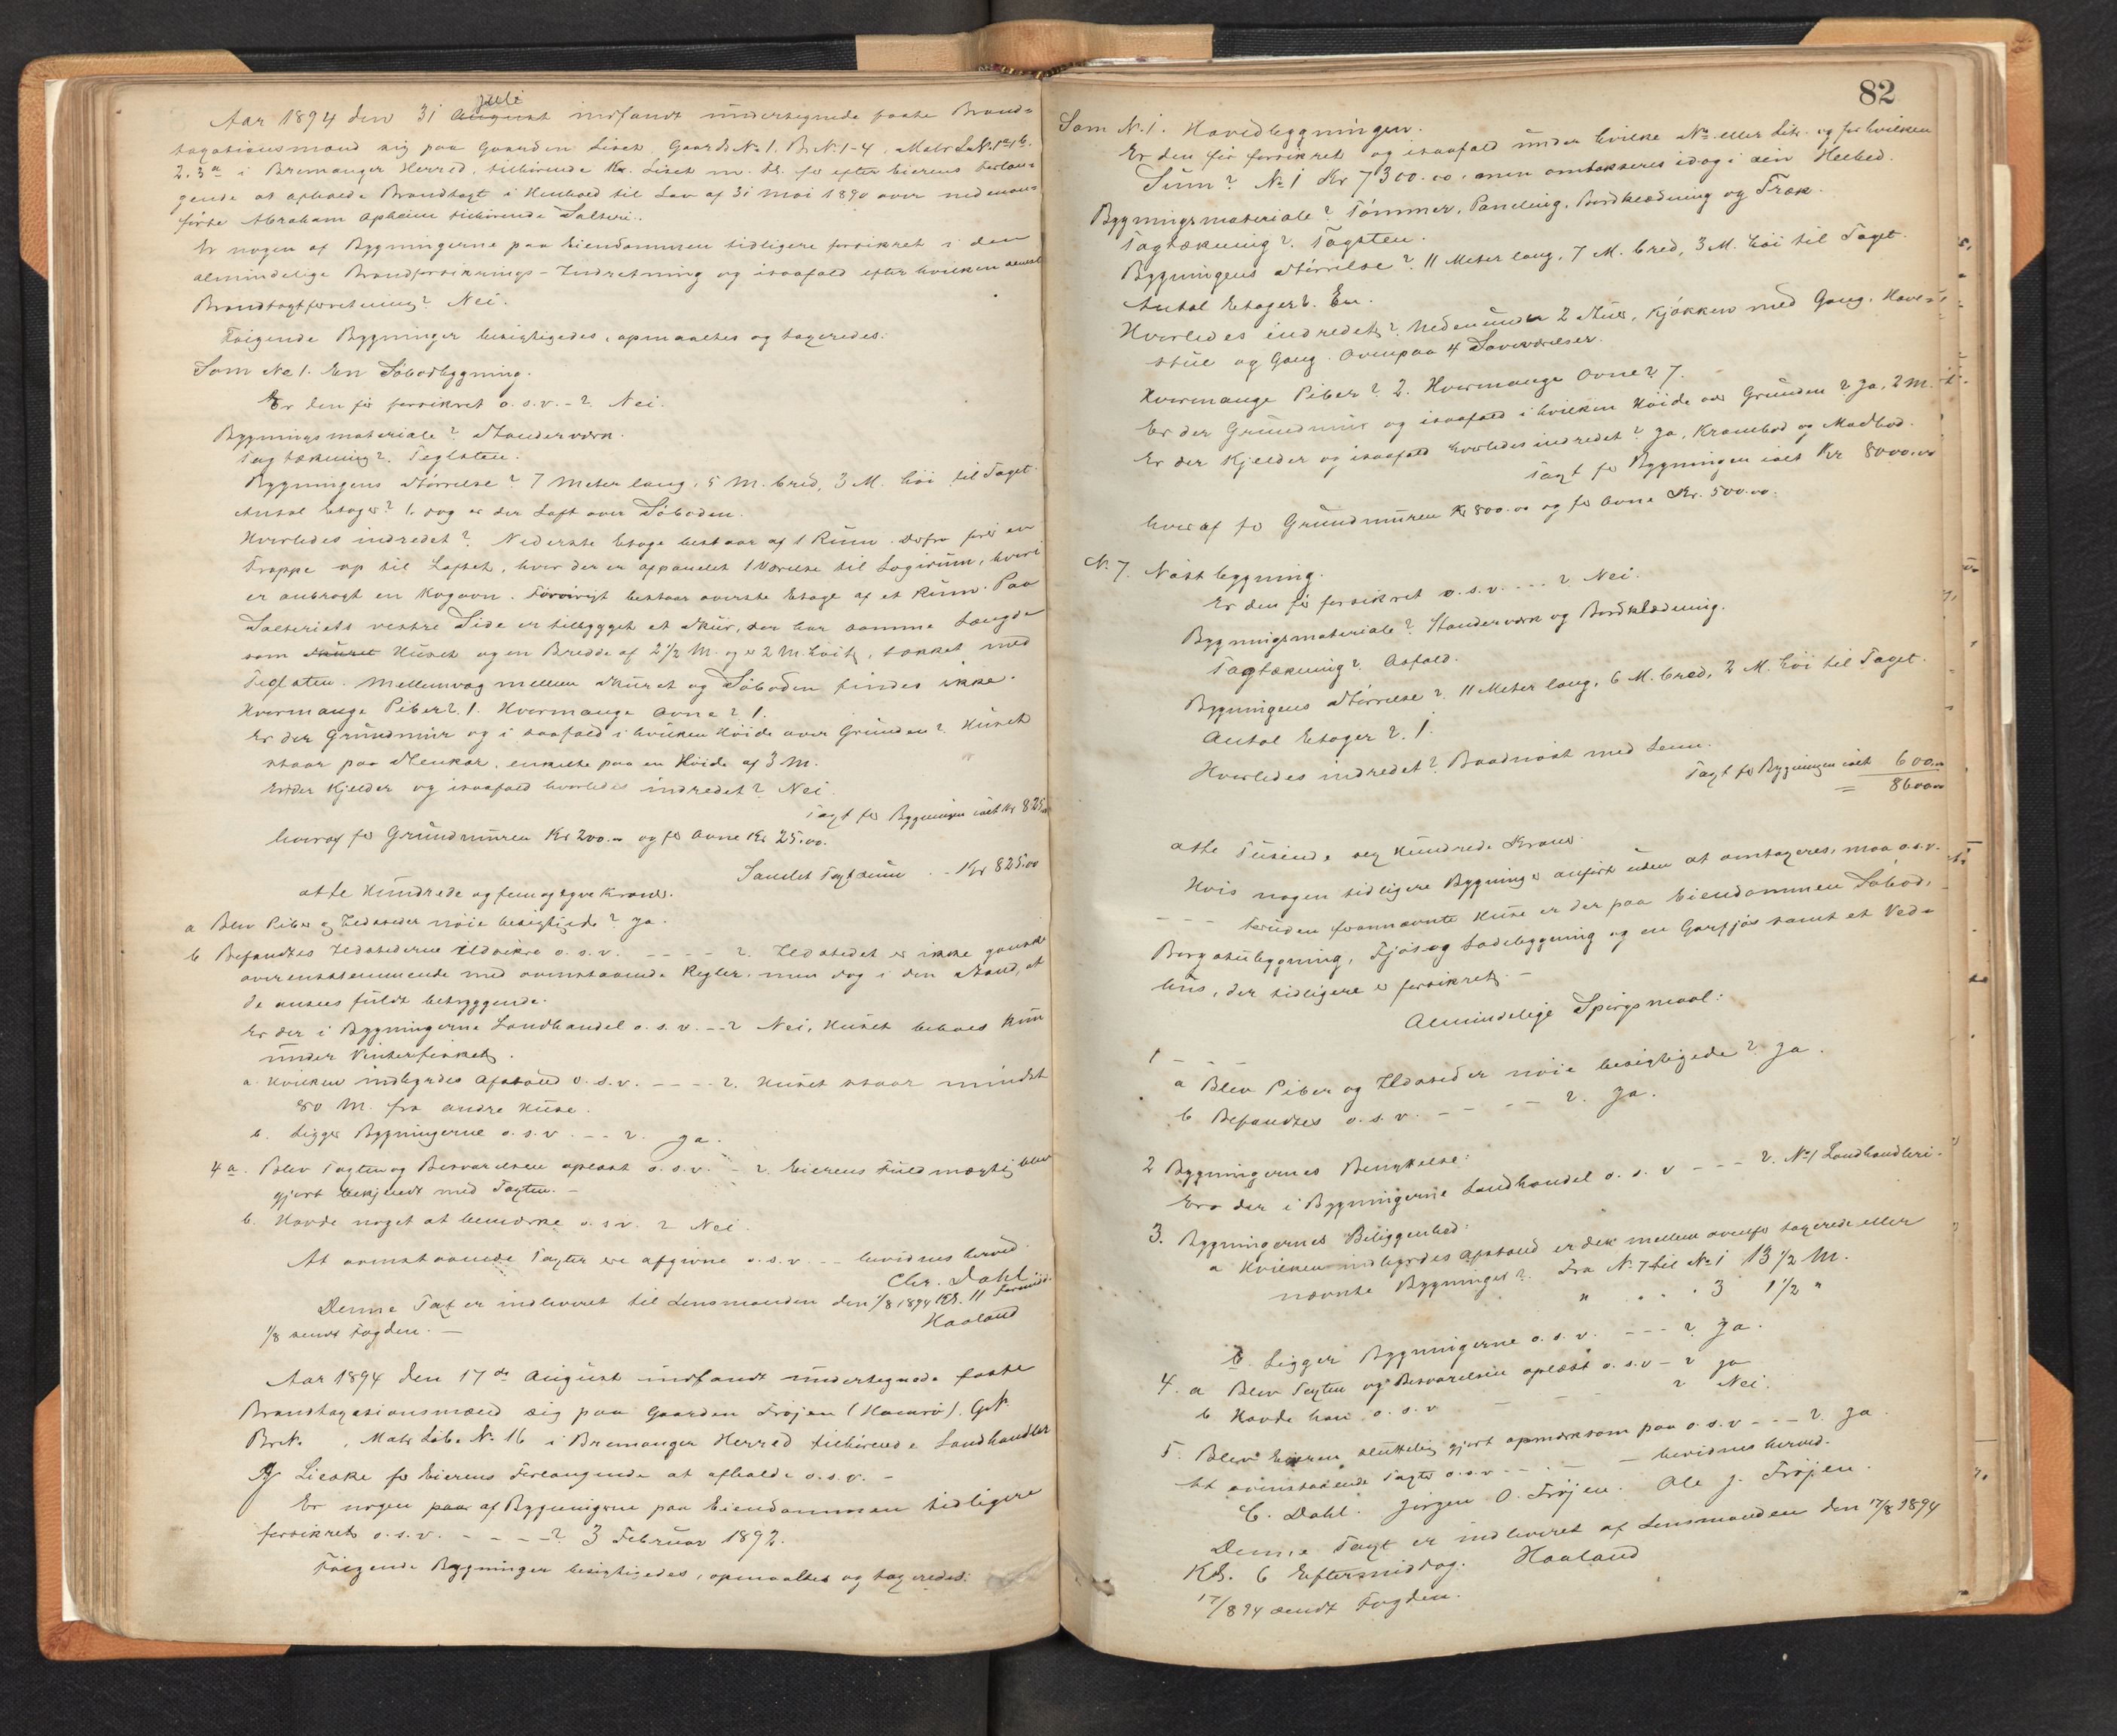 Juli
Aar 1894 den 31 August indfandt undertegnede faste Brand=
taxationsmænd sig paa Gaarden Liset Gaards No 1. Br. N. 1-4, Matr L. No 1a 1b.
2. 3a i Bremanger Herred, tilhørende Kr. Liset m. fl. for efter Eierens Forlan=
gende at afholde Brandtaxt i Henhold til Lov af 31 Mai 1890 over nedenan=
førte Abraham tilhørende Salteri.
Er nogen af Bygningerne paa Eiendommen tidligere forsikret i den
almindelige Brandforsikrings-Indretning og isaafald efter hvilken
Brandtaxtforretning? Nei.
Følgende Bygninger besigtigedes, opmaaltes og taxeredes:
Som No 1. En Søbodbygning.
Er den før forsikret o. s. v. - ? Nei.
Bygningsmateriale? Standerværk.
Tagtækning? Teglsten.
Bygningens Størrelse? 7 Meter lang, 5 M. bred, 3 M. høi til Taget.
Antal Etager? 1. dog er der Loft over Søboden.
Hvorledes indredet? Nederste Etage bestaar af 1 Rum. Derfra fører en
Trappe op til Loftet, hvor der er afpanelet 1 Værelse til Logirum, hvori
er anbragt en Kogovn. Forøvrigt bestaar øverste Etage af et Rum. Paa
Salteriets vestre Side er tilbygget et Skur, der har samme Længde
som Skuret Huset og en Bredde af 2½ M. og er 2 M. høit, tækket med
Teglsten. Mellemvæg mellem Skuret og Søboden findes ikke.
Hvormange Piber? 1. Hvormange Ovne? 1.
Er der Grundmur og i saafald i hvilken Høide over Grunden? Huset
staar paa Stenkar, enkelte paa en Høide af 3 M.
Er der Kjelder og isaafald hvorledes indredet? Nei.
Taxt for Bygningen ialt Kr 825.00
hvoraf for Grundmuren Kr 200.00 og for Ovne Kr 25.00.
Samlet Taxtsum . - Kr 825.00
otte Hundrede og fem og tyve Kroner.
a Blev Piber og Ildsteder nøie besigtigede? Ja.
b Befandtes Ildstederne ildsikre o. s. v. - - - - ? Ildstedet er ikke ganske
overensstemmende med ovenstaaende Regler, men dog i den Stand, at
de ansees fuldt betryggende.
Er der i Bygningerne Landhandel o. s. v. - - ? Nei, Huset beboes kun
under Vinterfisket.
a. Hvilken indbyrdes Afstand o. s. v. - - - - ? Huset staar mindst
80 M. fra andre Huse.
b. Ligger Bygningerne o. s. v. - - ? Ja.
4 a. Blev Taxten og Besvarelsen oplæst o. s. v. - ? Eierens Fuldmægtig blev
gjort bekjendt med Taxten. -
b. Havde noget at bemærke o. s. v. ? Nei.
At ovenstaaende Taxter ere afgivne o. s. v. - - - bevidnes herved.
Chr. Dahl.
Denne Taxt er indleveret til Lensmanden den 1/8 1894 Kl. 11 Formid.
Haaland
1/8 sendt Fogden. -
Aar 1894 den 17de August indfandt undertegnede faste
Brandtaxationsmænd sig paa Gaarden Frøjen (Havarø). G. N.
Br. N. , Matr. Løbe. No 16 i Bremanger Herred tilhørende Landhandler
Lieske for Eierens Forlangende at afholde o. s. v. -
Er nogen paa af Bygningerne paa Eiendommen tidligere
forsikret o. s. v. - - - - ? 3 Februar 1892.
Følgende Bygninger besigtigedes, opmaaltes og taxeredes:
82
Som N. 1. Hovedbygningen.
Er den før forsikret og isaafald under hvilke No eller Litr. og for hvilken
Sum? No 1 Kr 7300.00. men omtakseres idag i sin Helhed.
Bygningsmateriale? Tømmer, Paneling, Bordklædning og Træk.
Tagtækning? Tagsten.
Bygningens Størrelse? 11 Meter lang, 7 M. bred, 3 M. høi til Taget.
Antal Etager? En.
Hvorledes indredet? Nedenunder 2 Stuer, Kjøkken med Gang. Have=
stue og Gang. Ovenpaa 4 Soveværelser.
Hvormange Piber? 2. Hvormange Ovne? 7.
Er der Grundmur og isaafald i hvilken Høide over Grunden? Ja, 2 M.
Er der Kjelder og isaafald hvorledes indredet? Ja, Krambod og Madbod.
Taxt for Bygningen ialt Kr 8000.00
hvoraf for Grundmuren Kr 800.00 og for Ovne Kr. 500.00.
N. 7. Nøstbygning.
Er den før forsikret o. s. v. - - - ? Nei.
Bygningsmateriale? Standerværk og Bordklædning.
Tagtækning? Asfald.
Bygningens Størrelse? 11 Meter lang, 6 M. bred, 2 M. høi til Taget.
Antal Etager? 1.
Hvorledes indredet? Baadnøst med Lem.
Taxt for Bygningen ialt 600.00
= 8600.00
otte Tusinde sex Hundrede Kroner.
Hvis nogen tidligere Bygninger anført uden at omtaxeres, maa o. s. v.
- - - Foruden fornævnte Huse er der paa Eiendommen Søbod,
Borgstubygning, Fjøs og Ladebygning og en Gartfjøs samt et Ved=
hus, der tidligere er forsikret. -
Almindelige Spørgsmaal:
1
a Blev Piber og Ildsteder nøie besigtigede? Ja.
b Befandtes o. s. v. - - - - ? Ja.
2 Bygningernes Benyttelse:
Ere der i Bygningerne Landhandel o. s. v - - - ? No 1 Landhandleri.
3. Bygningernes Beliggenhed:
a Hvilken indbyrdes Afstand er der mellem ovenfor taxerede eller
nævnte Bygninger? Fra N. 7 til No 1 13½ M.
" . . . 3 1½ "
b. Ligger Bygningerne o. s. v. - - - ? Ja.
4. a Blev Taxten og Besvarelsen oplæst o. s. v - ? Ja
b Havde han o. s. v - - - ? Nei.
5. Blev Eieren skriftelig gjort opmærksom paa o. s. v - - - ? Ja.
At ovenstaaende Taxter o. s. v - - - - bevidnes herved.
C. Dahl. Jørgen O. Frøjen. Ole J. Frøjen.
Denne Taxt er indleveret af Lensmanden den 17/8 1894
Kl. 6 Eftermiddag. Haaland
17/8 94 sendt Fogden.